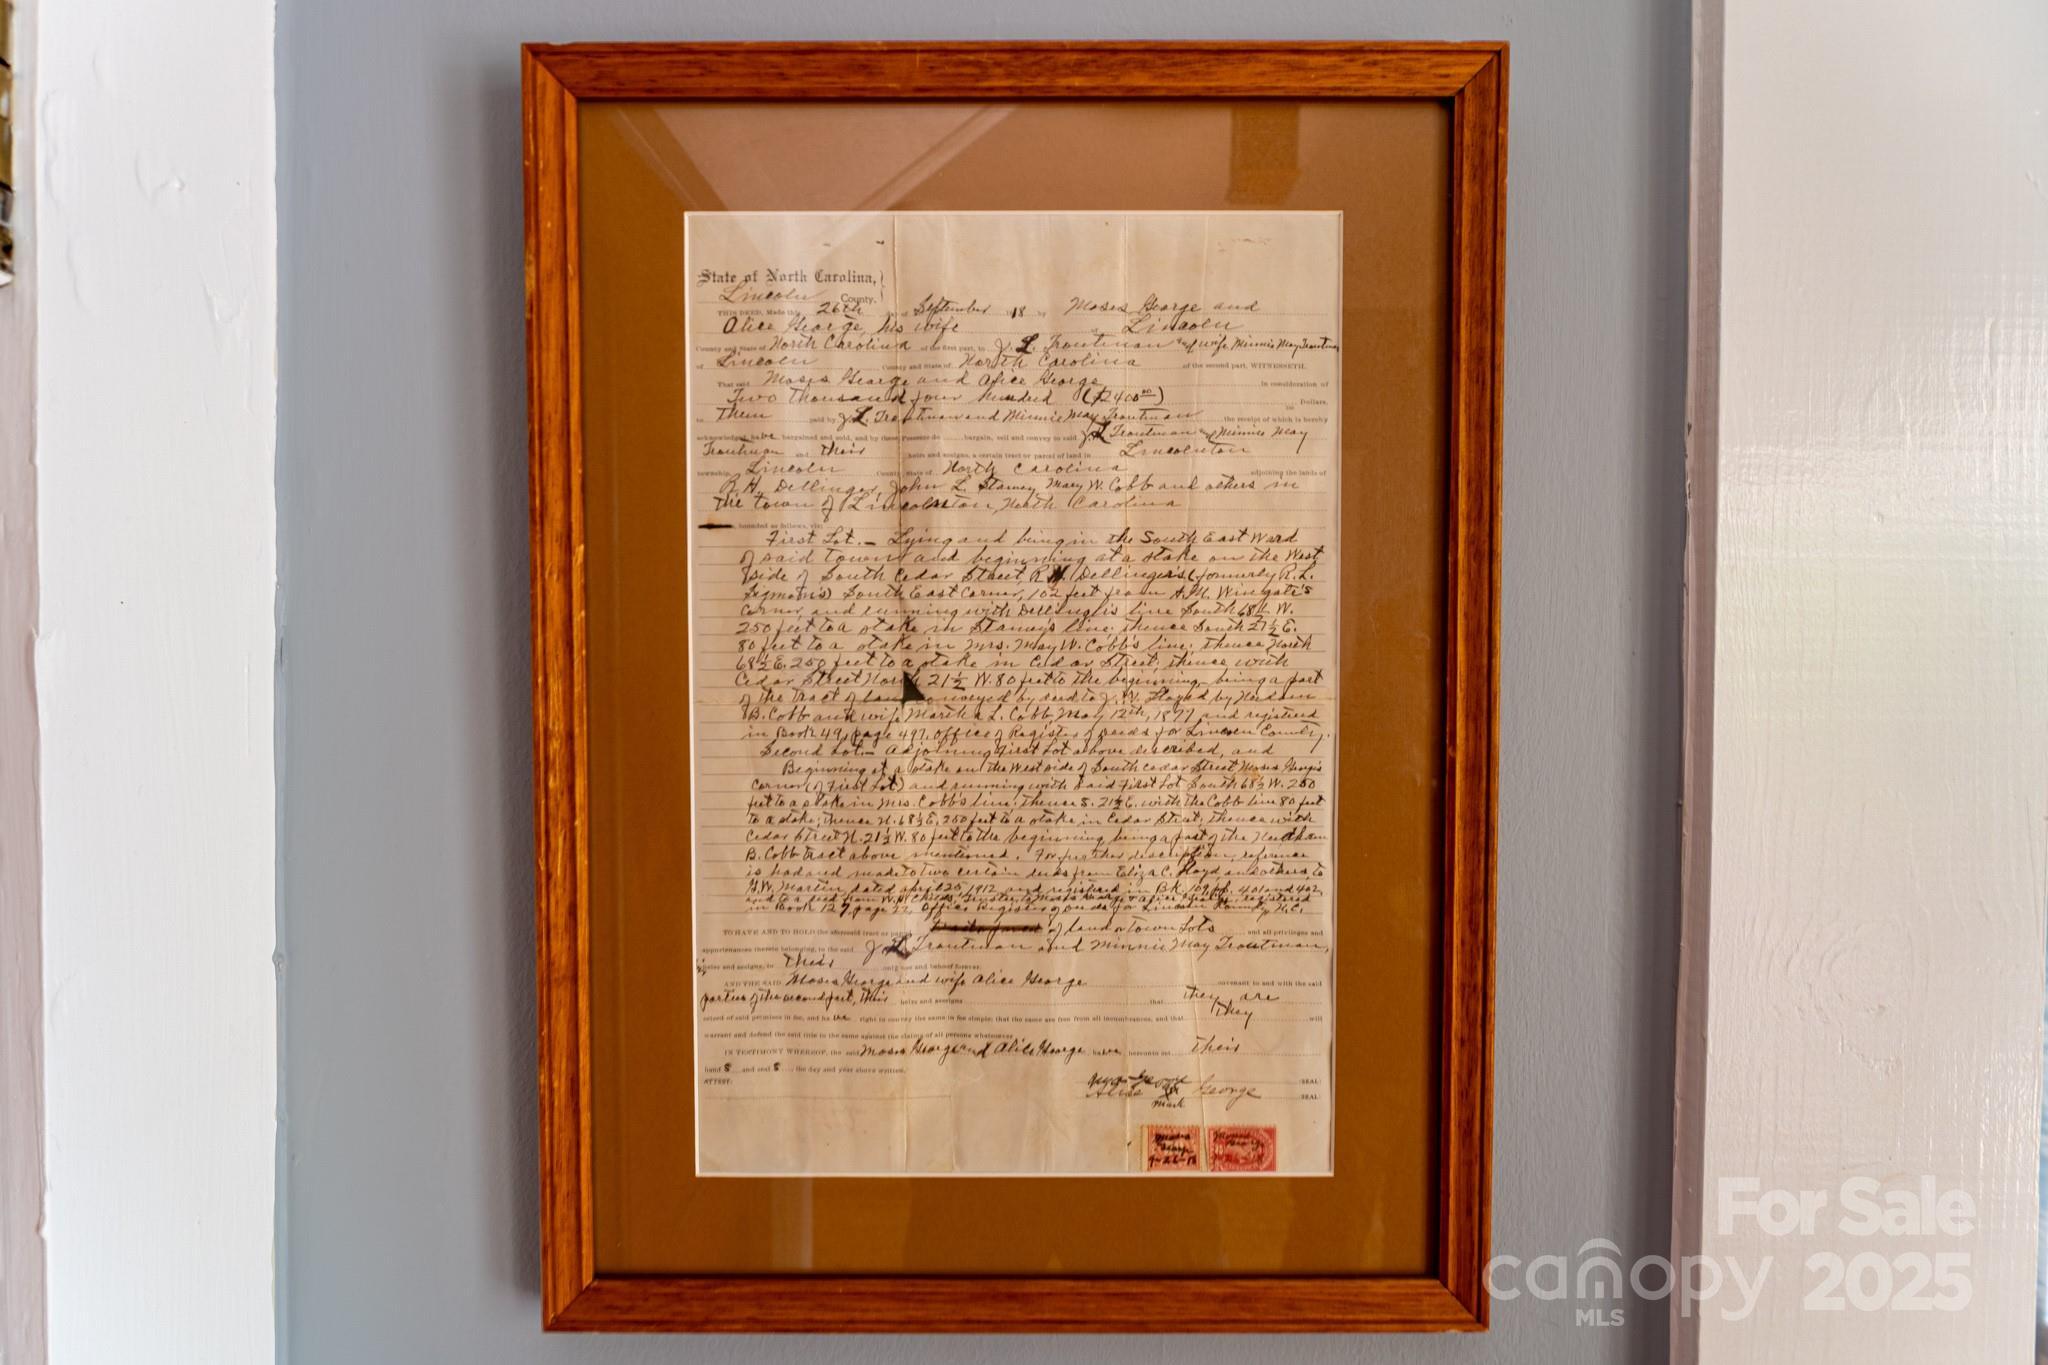 State of North Carolina,
Lincoln County.
THIS DEED, Made this 26th day of September 18 by Moses George and
Alice George, his wife of Lincoln
County and State of North Carolina of the first part, to J. L. Troutman and wife Minnie May Troutman
of Lincoln County and State of North Carolina of the second part, WITNESSETH.
That said Moses George and Alice George in consideration of
Two thousand four hundred ($2400 00) Dollars,
to them paid by J. L. Troutman and Minnie May Troutman the receipt of which is hereby
acknowledged, have bargained and sold, and by these Presents do bargain, sell and convey to said J. L. Troutman and Minnie May
Troutman and their heirs and assigns, a certain tract or parcel of land in Lincolnton
township, Lincoln County, State of North Carolina adjoining the lands of
R. H. Dellinger, John L. Stamey, Mary W. Cobb and others in
the town of Lincolnton, North Carolina
bounded as follows, viz:
First Lot.— Lying and being in the South East Ward
of said town and beginning at a stake on the West
side of South Cedar Street, R. H. Dellinger's (formerly R. L.
Sigmon's) South East Corner, 102 feet from A.M. Wingate's
Corner and running with Dellinger's line South 68½ W.
250 feet to a stake in Stamey's line; thence South 21½ E.
80 feet to a stake in Mrs. May W. Cobb's line; thence North
68½ E. 250 feet to a stake in Cedar Street; thence with
Cedar Street North 21½ W. 80 feet to the beginning, being a part
of the tract of land conveyed by deed to J. W. Floyd by
B. Cobb and wife Martha L. Cobb, May 12th, 1877 and registered
in Book 49, page 497, office of Register of Deeds for Lincoln County.
Second Lot.— Adjoining First Lot above described, and
Beginning at a stake on the West side of South Cedar Street Moses George's
Corner (of First Lot) and running with said First Lot South 68½ W. 250
feet to a stake in Mrs. Cobb's line; thence S. 21½ E. with the Cobb line 80 feet
to a stake; thence N. 68½ E. 250 feet to a stake in Cedar Street; thence with
Cedar Street N. 21½ W. 80 feet to the beginning being a part of the Needham
B. Cobb tract above mentioned. For further description, reference
is had and made to two certain deeds from Eliza C. Floyd and others, to
G.W. Martin, dated April 25, 1912 and registered in Bk. 109, pp. 401 and 402,
and to a deed from W. H. Childs, Trustee, to Moses George & Alice George, registered
in Book 127, page 22, Office Register of Deeds for Lincoln County, N.C.
TO HAVE AND TO HOLD the aforesaid tract or parcel of land or Town Lots and all privileges and
appurtenances thereto belonging, to the said J. L. Troutman and Minnie May Troutman,
heirs and assigns, to their only use and behoof forever.
AND THE SAID Moses George and wife Alice George covenant to and with the said
parties of the second part, their heirs and assigns that they are
seized of said premises in fee, and have right to convey the same in fee simple; that the same are free from all incumbrances, and that they will
warrant and defend the said title to the same against the claims of all persons whatsoever
IN TESTIMONY WHEREOF, the said Moses George and Alice George have hereunto set their
hands and seals, the day and year above written.
ATTEST: George (SEAL)
Alice X George (SEAL)
mark
Moses George 9-26-18
Moses George 9-26-18
For Sale
canopy 2025
MLS